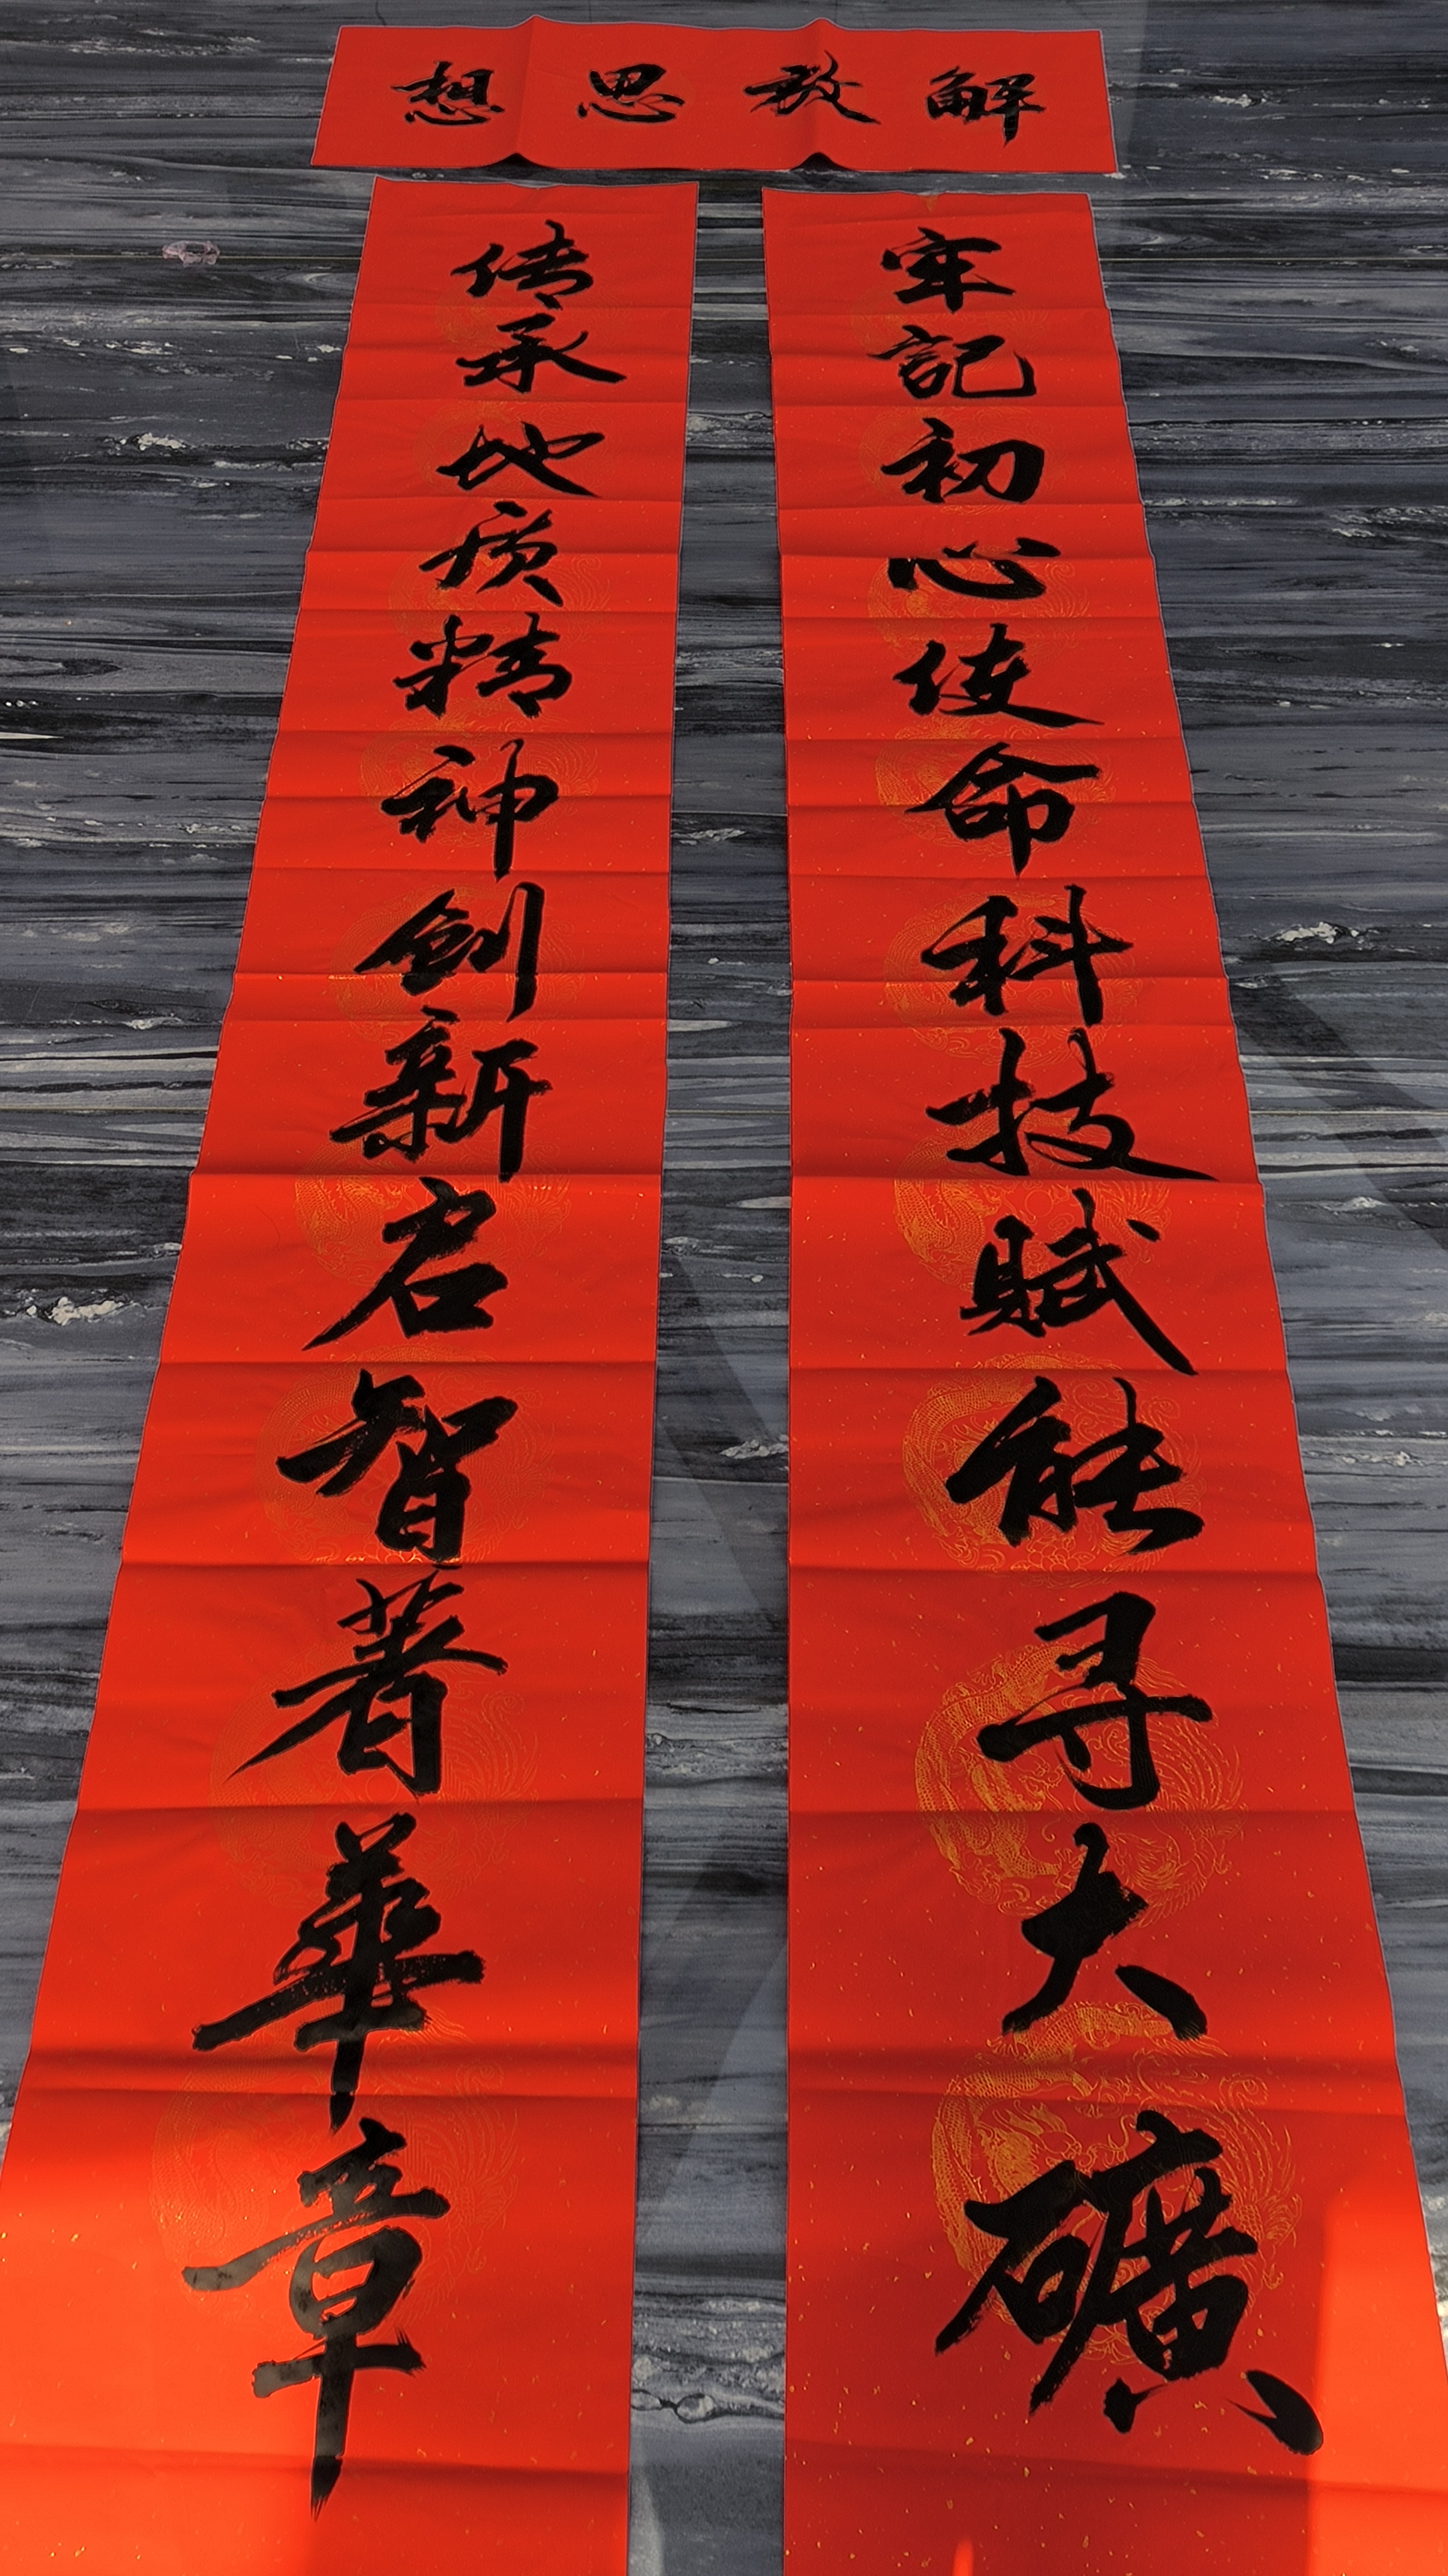 解放思想
牢記初心使命科技賦能寻大礦
传承地质精神創新启智著華章